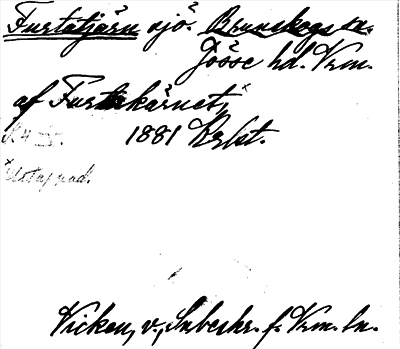 Furtåtjärn sjö. Brunskogs sn.
Jösse hd. Vrm.
af Furtekärnet,x
1881 Krlst.
x Utsuddad.
Vicken, v., Inbeskr. f. Vrm. ln.